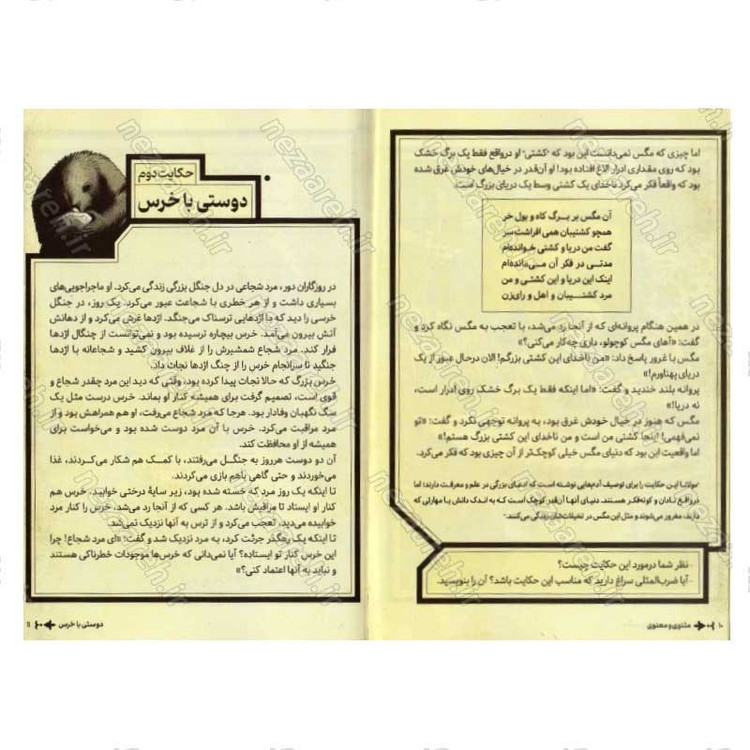 اما چیزی که مگس نمی‌دانست این بود که «کشتی» او درواقع فقط یک برگ خشک
بود که روی مقداری ادرار الاغ افتاده بود! او آن‌قدر در خیال‌های خودش غرق شده
بود که واقعاً فکر می‌کرد ناخدای یک کشتی وسط یک دریای بزرگ است.
آن مگس بر برگ کاه و بول خر
همچو کشتیبان همی افراشت سر
گفت من دریا و کشتی خوانده‌ام
مدتی در فکر آن می‌مانده‌ام
اینک این دریا و این کشتی و من
مرد کشتیبان و اهل و رای‌زن
در همین هنگام پروانه‌ای که از آنجا رد می‌شد، با تعجب به مگس نگاه کرد و
گفت: «آهای مگس کوچولو، داری چه‌کار می‌کنی؟»
مگس با غرور پاسخ داد: «من ناخدای این کشتی بزرگم! الان درحال عبور از یک
دریای پهناورم!»
پروانه بلند خندید و گفت: «اما اینکه فقط یک برگ خشک روی ادرار است،
نه دریا!»
مگس که هنوز در خیال خودش غرق بود، به پروانه توجهی نکرد و گفت: «تو
نمی‌فهمی! اینجا کشتی من است و من ناخدای این کشتی بزرگ هستم!»
اما واقعیت این بود که دنیای مگس خیلی کوچک‌تر از آن چیزی بود که فکر می‌کرد.
«مولانا این حکایت را برای توصیف آدم‌هایی نوشته است که ادعای بزرگی در علم و معرفت دارند؛ اما
درواقع نادان و کوته‌فکر هستند. دنیای آنها آن‌قدر کوچک است که به اندک دانش یا مهارتی که
دارند، مغرور می‌شوند و مثل این مگس در تخیلاتشان زندگی می‌کنند.»
نظر شما درمورد این حکایت چیست؟
آیا ضرب‌المثلی سراغ دارید که مناسب این حکایت باشد؟ آن را بنویسید.
۱۰ مثنوی و معنوی
حکایت دوم
دوستی با خرس
در روزگاران دور، مرد شجاعی در دل جنگل بزرگی زندگی می‌کرد. او ماجراجویی‌های
بسیاری داشت و از هر خطری با شجاعت عبور می‌کرد. یک روز، در جنگل
خرسی را دید که با اژدهایی ترسناک می‌جنگد. اژدها غرش می‌کرد و از دهانش
آتش بیرون می‌آمد. خرس بیچاره ترسیده بود و نمی‌توانست از چنگال اژدها
فرار کند. مرد شجاع شمشیرش را از غلاف بیرون کشید و شجاعانه با اژدها
جنگید تا سرانجام خرس را از چنگ اژدها نجات داد.
خرس بزرگ که حالا نجات پیدا کرده بود، وقتی که دید این مرد چقدر شجاع و
قوی است، تصمیم گرفت برای همیشه کنار او بماند. خرس درست مثل یک
سگ نگهبان وفادار بود. هرجا که مرد شجاع می‌رفت، او هم همراهش بود و از
مرد مراقبت می‌کرد. خرس با آن مرد دوست شده بود و می‌خواست برای
همیشه از او محافظت کند.
آن دو دوست هرروز به جنگل می‌رفتند، با کمک هم شکار می‌کردند، غذا
می‌خوردند و حتی گاهی باهم بازی می‌کردند.
تا اینکه یک روز مرد که خسته شده بود، زیر سایهٔ درختی خوابید. خرس هم
کنار او ایستاد تا مراقبش باشد. هر کسی که از آنجا رد می‌شد، خرس را کنار مرد
خوابیده می‌دید، تعجب می‌کرد و از ترس به آنها نزدیک نمی‌شد.
تا اینکه یک رهگذر جرئت کرد، به مرد نزدیک شد و گفت: «ای مرد شجاع! چرا
این خرس کنار تو ایستاده؟ آیا نمی‌دانی که خرس‌ها موجودات خطرناکی هستند
و نباید به آنها اعتماد کنی؟»
دوستی با خرس ۱۱
nezaareh.ir